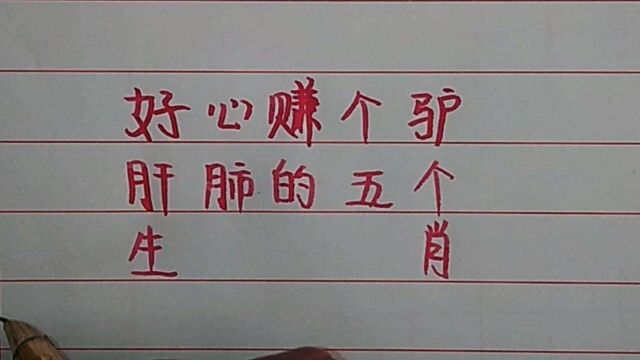 好心赚个驴
肝肺的五个
生肖